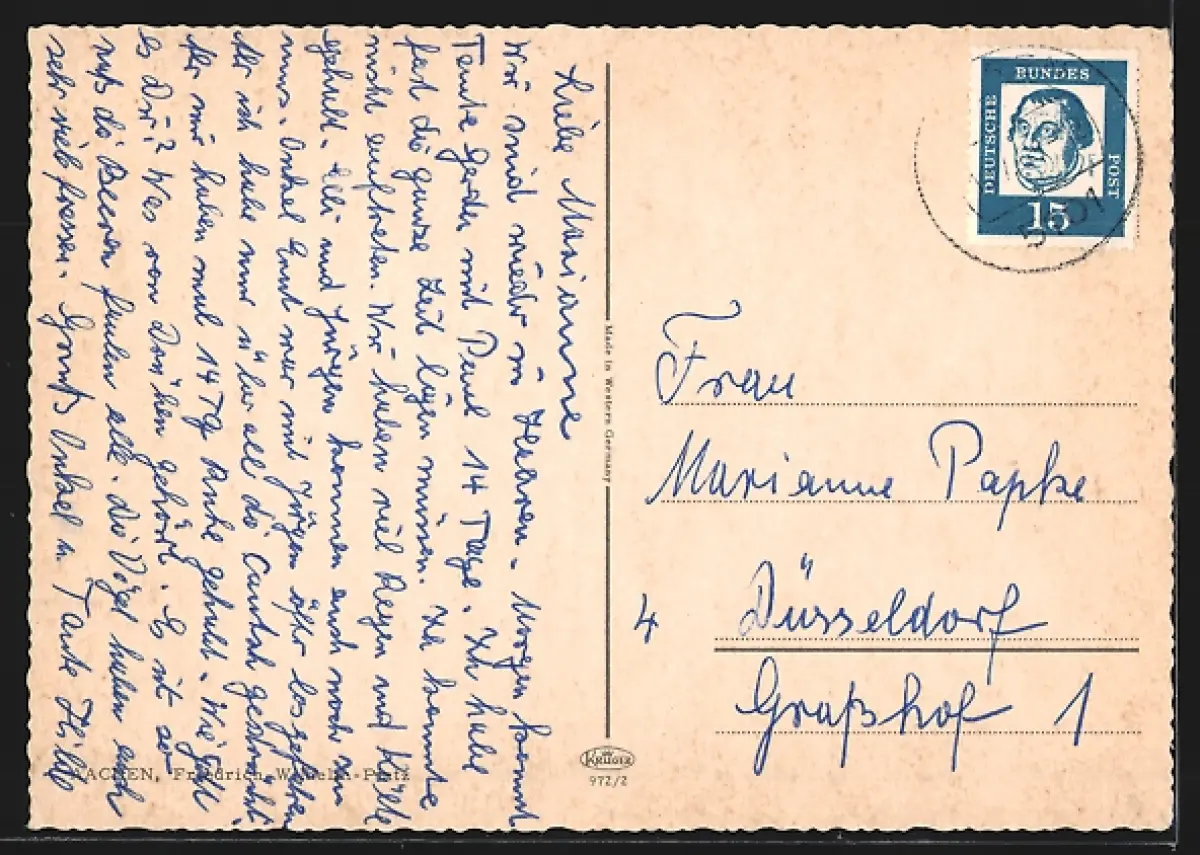 Liebe Marianne
Wir sind wieder in Hausen. Morgen kommt
Tante Gerda mit Paul 14 Tage. Ich habe
fast die ganze Zeit liegen müssen. Ich konnte
nicht auftreten. Wir haben viel Regen und Kälte
gehabt. Elli und Jürgen kommen auch noch zu
uns. Onkel Ernst war mit Jürgen öfter losgefahren
Aber ich habe nur über all die gestrickt.
Aber wir haben mal 14 Tg Ruhe gehabt. Wie geht
es Dir? Was von gehört. Es ist so
naß die Beeren faulen alle. Die Vögel haben auch
sehr viel fressen. Gruß Onkel u Tante Hilde
AACHEN, Friedrich-Wilhelm-Platz
Made in Western Germany
KRÜGER
972/2
DEUTSCHE
BUNDES
POST
15
Frau
Marianne Papke
4 Düsseldorf
Graßhof 1